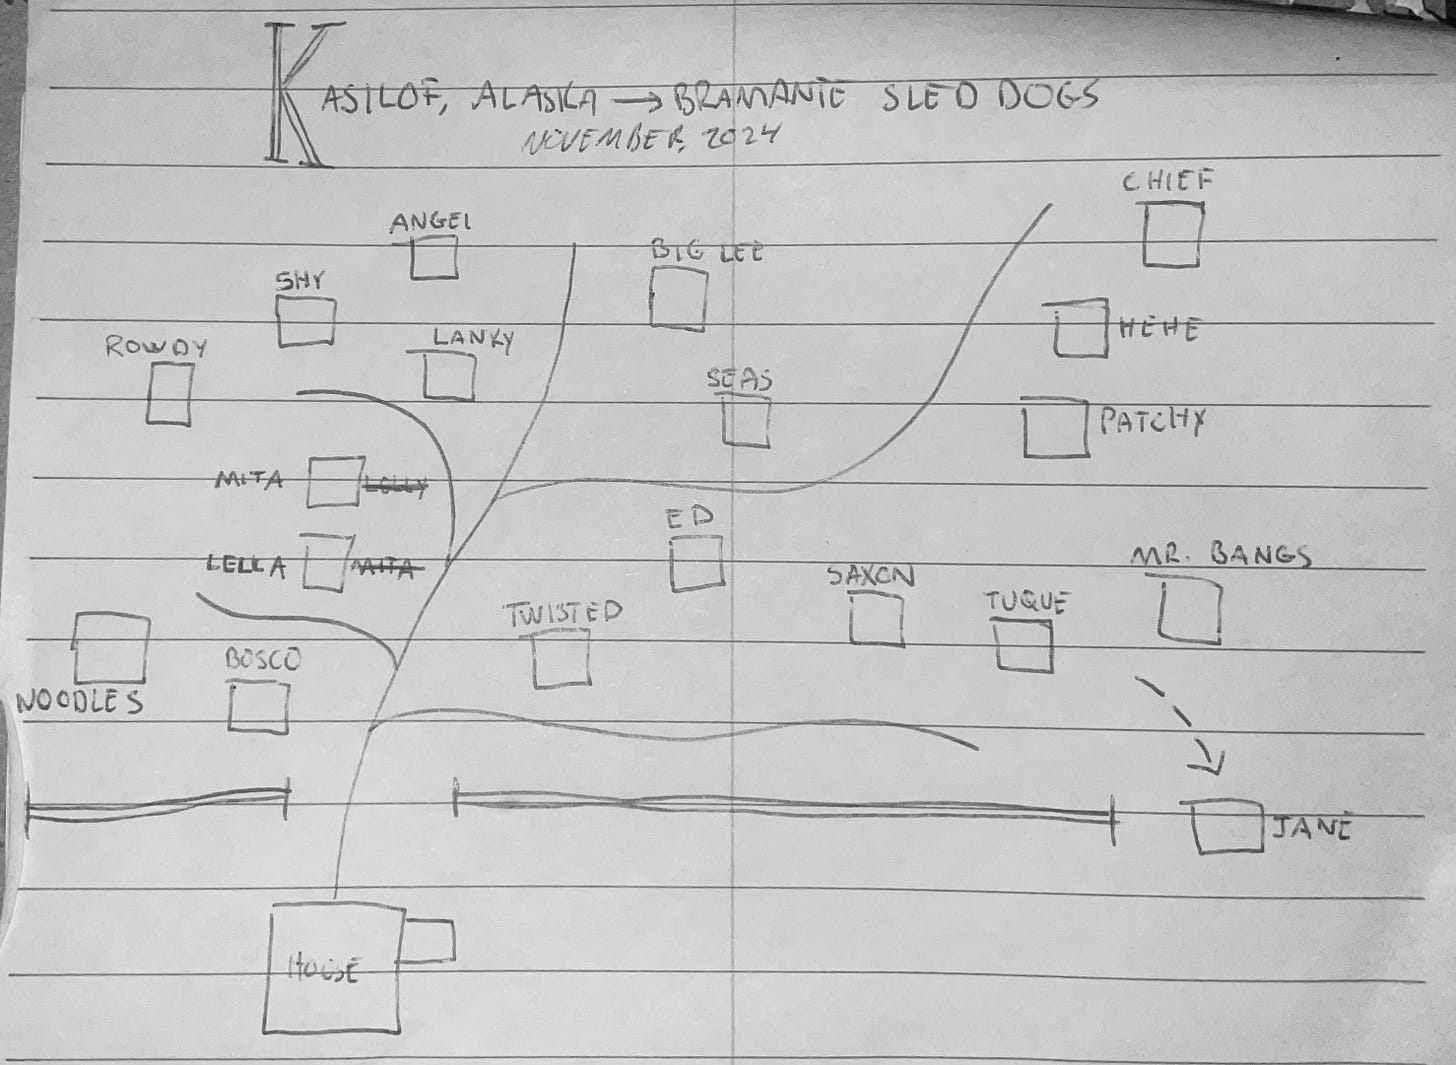 KASILOF, ALASKA → BRAMANTE SLED DOGS
NOVEMBER, 2024
CHIEF
ANGEL
BIG LEE
SHY
HEHE
ROWDY
LANKY
SEAS
PATCHY
MITA LELLY
ED
LELLA MITA
MR. BANGS
SAXON
TUQUE
TWISTED
BOSCO
NOODLES
JANE
HOUSE